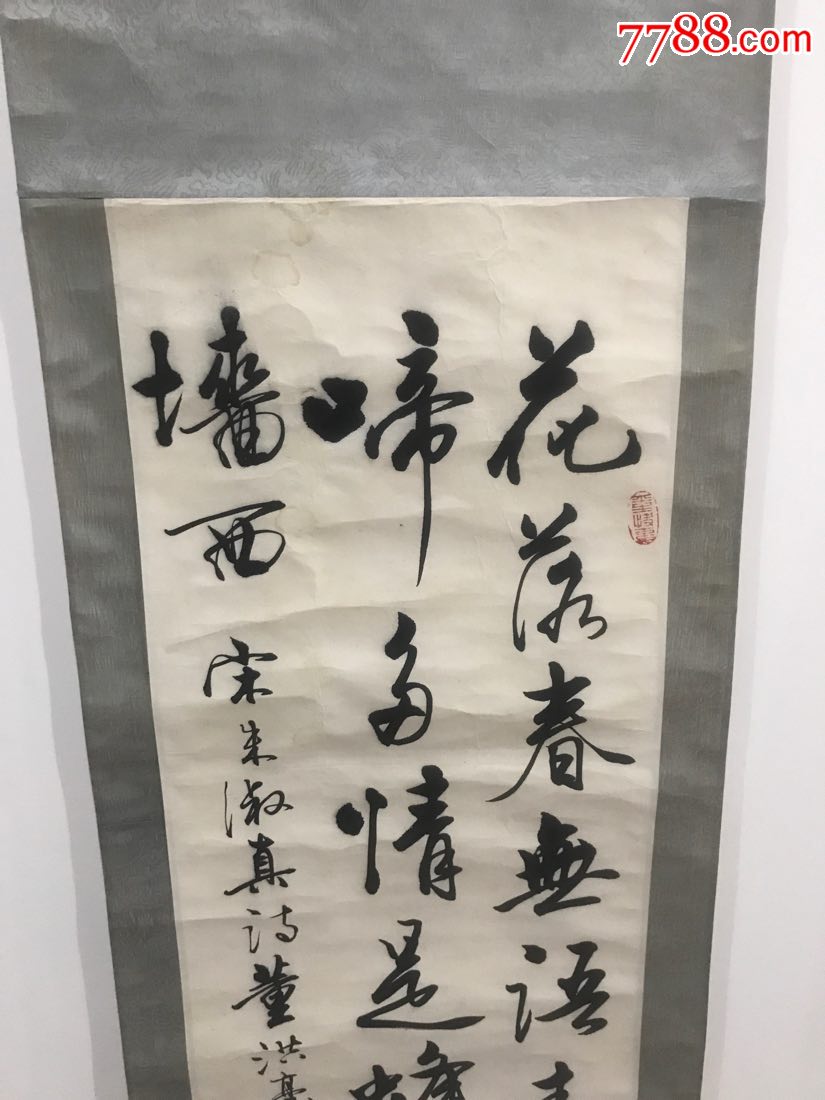 7788.com
花落春無語
啼多情是蜂
墻西 宋朱淑真詩董洪亮